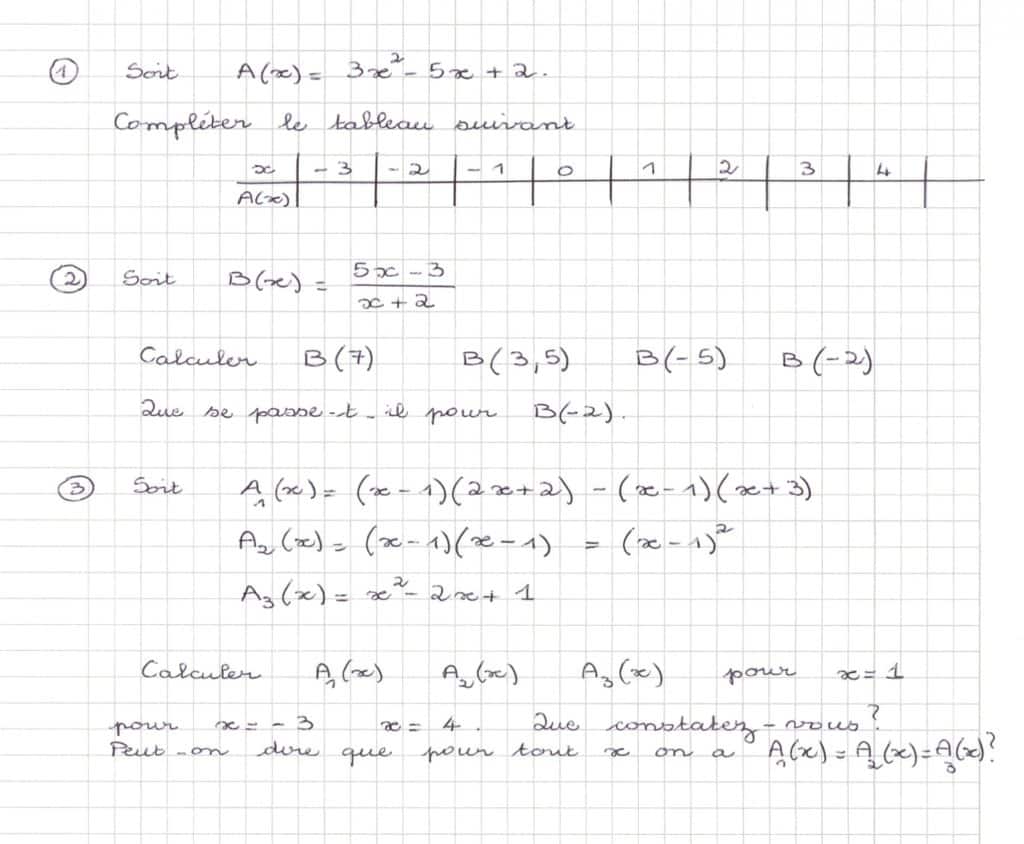 ① Soit A(x) = 3x² - 5x + 2.
Compléter le tableau suivant
x | -3 | -2 | -1 | 0 | 1 | 2 | 3 | 4 |
A(x) | | | | | | | | |
② Soit B(x) = (5x - 3)/(x + 2)
Calculer B(7) B(3,5) B(-5) B(-2)
Que se passe-t-il pour B(-2).
③ Soit A₁(x) = (x - 1)(2x + 2) - (x - 1)(x + 3)
A₂(x) = (x - 1)(x - 1) = (x - 1)²
A₃(x) = x² - 2x + 1
Calculer A₁(x) A₂(x) A₃(x) pour x = 1
pour x = -3 x = 4. Que constatez-vous?
Peut-on dire que pour tout x on a A₁(x) = A₂(x) = A₃(x)?